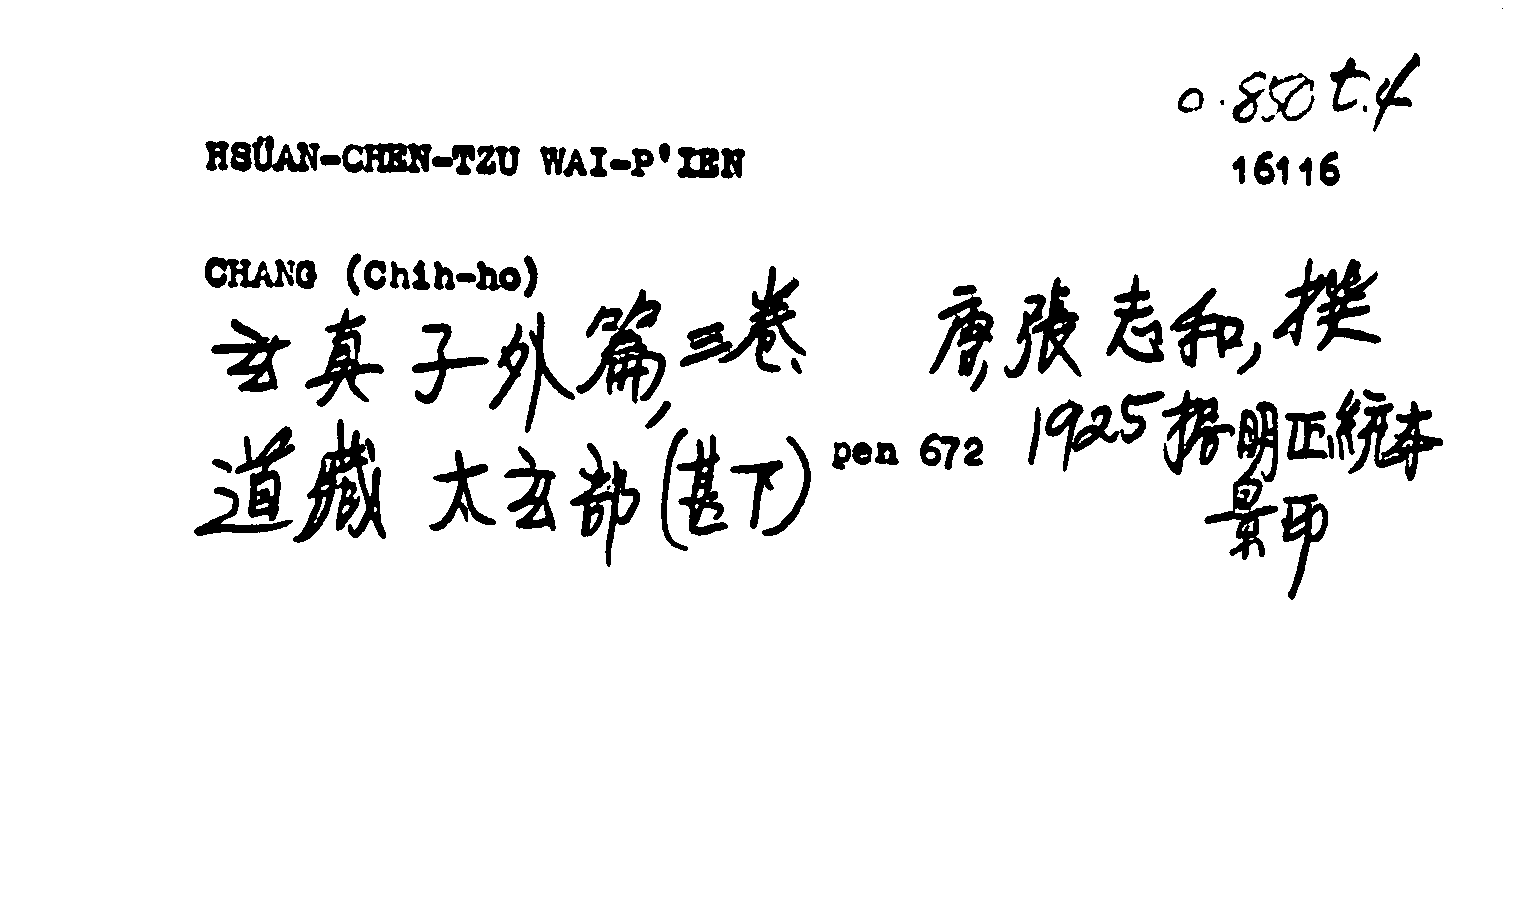 0.850 t.4
HSÜAN-CHEN-TZU WAI-P'IEN
16116
CHANG (Chih-ho)
玄真子外篇,三卷、 唐,張志和,撰
道藏 太玄部(甚下) pen 672 1925 据明正統本
景印